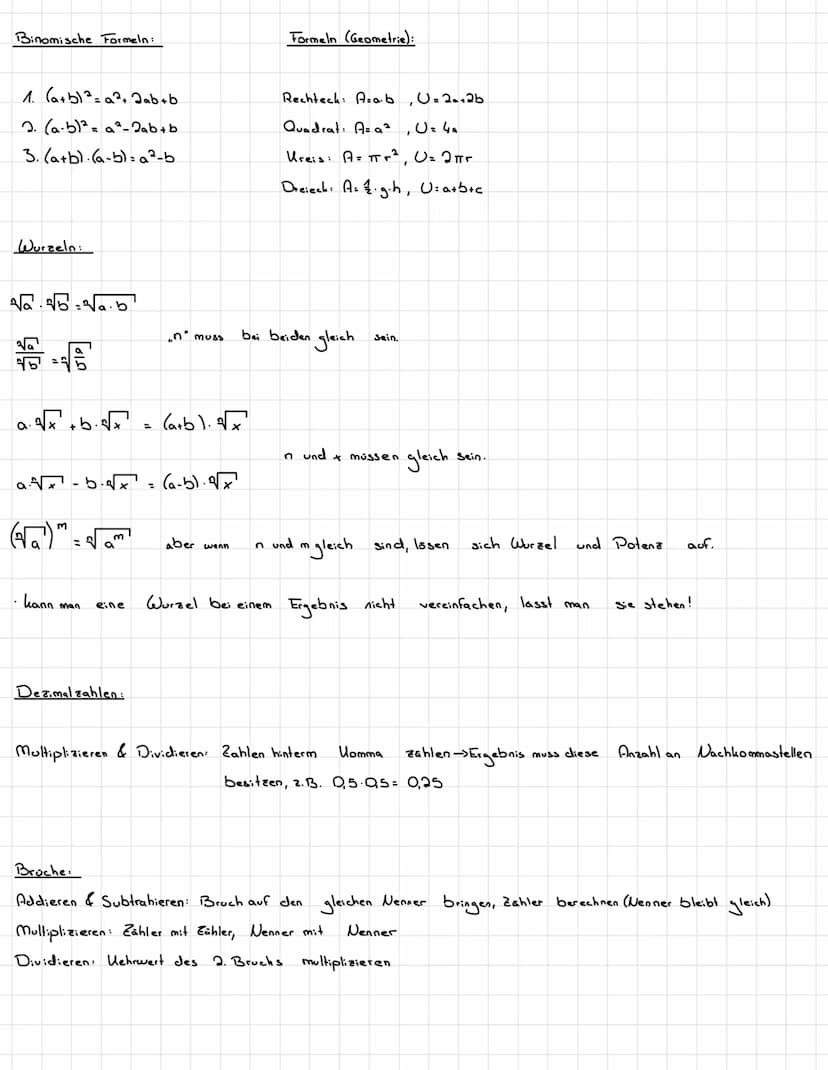 Binomische Formeln:
Formeln (Geometrie):
1. (a+b)² = a² + 2ab+b
2. (a-b)² = a² - 2ab+b
3. (a+b)·(a-b) = a²-b
Rechteck: A=a·b , U=2a+2b
Quadrat: A=a² , U=4a
Kreis: A=πr² , U=2πr
Dreieck: A=½·g·h, U=a+b+c
Wurzeln:
ⁿ√a · ⁿ√b = ⁿ√a·b
ⁿ√a / ⁿ√b = ⁿ√a/b
„n" muss bei beiden gleich sein.
a·ⁿ√x + b·ⁿ√x = (a+b)·ⁿ√x
n und x müssen gleich sein.
a·ⁿ√x - b·ⁿ√x = (a-b)·ⁿ√x
(ⁿ√a)ᵐ = ⁿ√aᵐ aber wenn n und m gleich sind, lösen sich Wurzel und Potenz auf.
· kann man eine Wurzel bei einem Ergebnis nicht vereinfachen, lässt man sie stehen!
Dezimalzahlen:
Multiplizieren & Dividieren: Zahlen hinterm Komma zählen→Ergebnis muss diese Anzahl an Nachkommastellen
besitzen, z.B. 0,5·0,5= 0,25
Brüche:
Addieren & Subtrahieren: Bruch auf den gleichen Nenner bringen, Zähler berechnen (Nenner bleibt gleich)
Multiplizieren: Zähler mit Zähler, Nenner mit Nenner
Dividieren: Kehrwert des 2. Bruchs multiplizieren